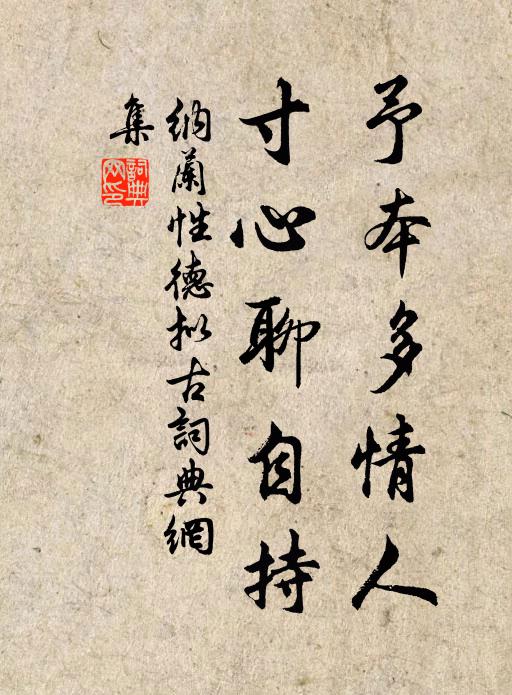 予本多情人
寸心聊自持
納蘭性德擬古詞典網
集
詞典網印